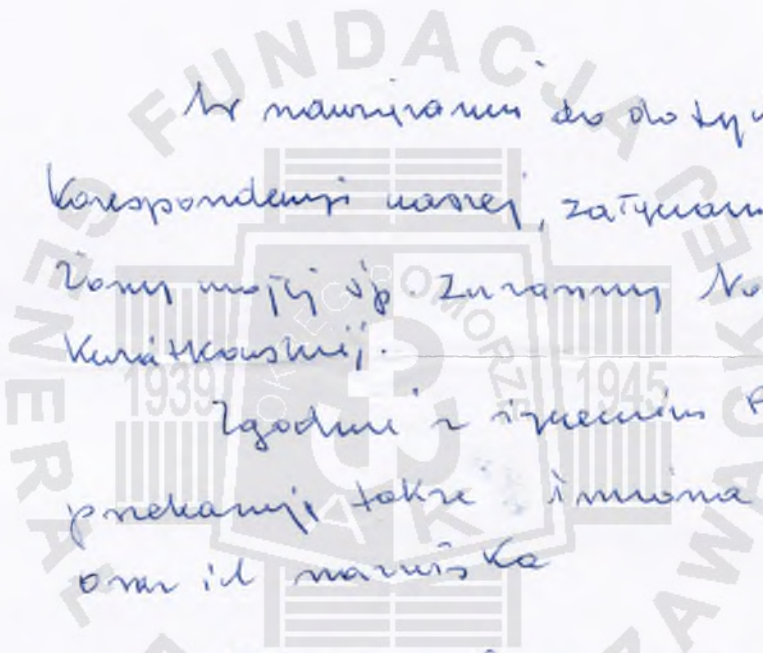 W nawiązaniu do doty
korespondencji naszej, załączam
Żony mojej śp. Zuzanny No
Kwiatkowskiej.
Zgodnie z życzeniem P
przekazuję także imiona
oraz ich nazwiska
FUNDACJA
GENERAŁ
ZAWACK
OKRĘG POMORZE
1939
1945
AK